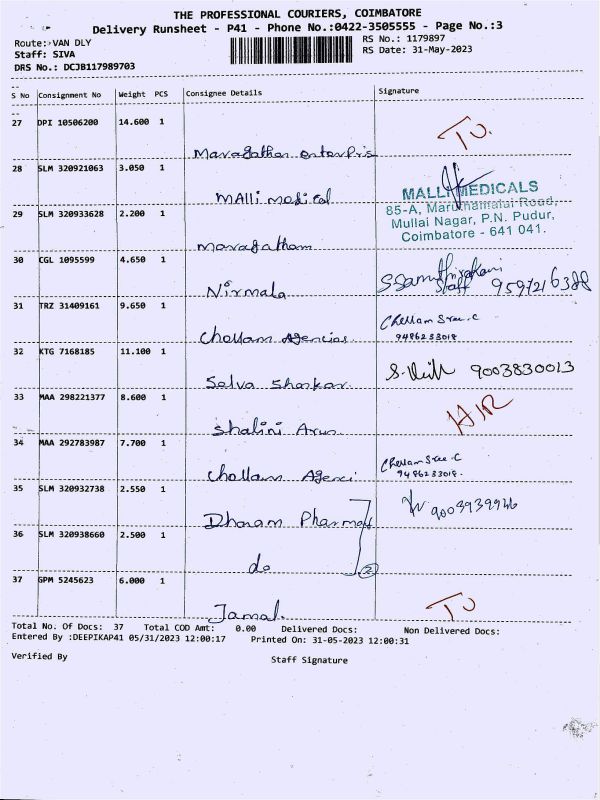 THE PROFESSIONAL COURIERS, COIMBATORE
Delivery Runsheet - P41 - Phone No.:0422-3505555 - Page No.:3
Route: VAN DLY
RS No.: 1179897
Staff: SIVA
RS Date: 31-May-2023
DRS No.: DCJB117989703
S No Consignment No Weight PCS Consignee Details Signature
27 DPI 10506200 14.600 1
Maragathan enterpris
28 SLM 320921063 3.050 1
MAlli medical
MALLI MEDICALS
85-A, Maruthamalai Road,
Mullai Nagar, P.N. Pudur,
Coimbatore - 641 041.
29 SLM 320933628 2.200 1
maragatham
30 CGL 1095599 4.650 1
Nirmala
Staff 9597216388
31 TRZ 31409161 9.650 1
Chollam Agencies
Chellam Sree.C
9486233018
32 KTG 7168185 11.100 1
Selva Shankar
9003830013
33 MAA 298221377 8.600 1
Shalini Arun
34 MAA 292783987 7.700 1
Chollam Agenci
Chellam Sree.C
9486233018.
35 SLM 320932738 2.550 1
Dharam Pharmacy
9003939946
36 SLM 320938660 2.500 1
do
2
37 GPM 5245623 6.000 1
Jamal.
Total No. Of Docs: 37 Total COD Amt: 0.00 Delivered Docs: Non Delivered Docs:
Entered By :DEEPIKAP41 05/31/2023 12:00:17 Printed On: 31-05-2023 12:00:31
Verified By
Staff Signature